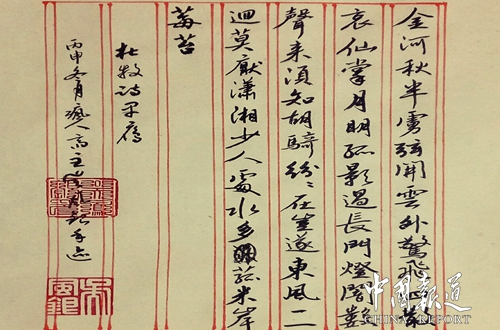 金河秋半虜弦開雲外驚飛四散
哀仙掌月明孤影過長門燈暗數
聲來須知胡騎紛〻在豈逐東風一二
迴莫厭瀟湘少人處水多菰米岸
莓苔
杜牧诗早雁
丙申冬月 人高主 手迹
中國報道
CHINA REPORT